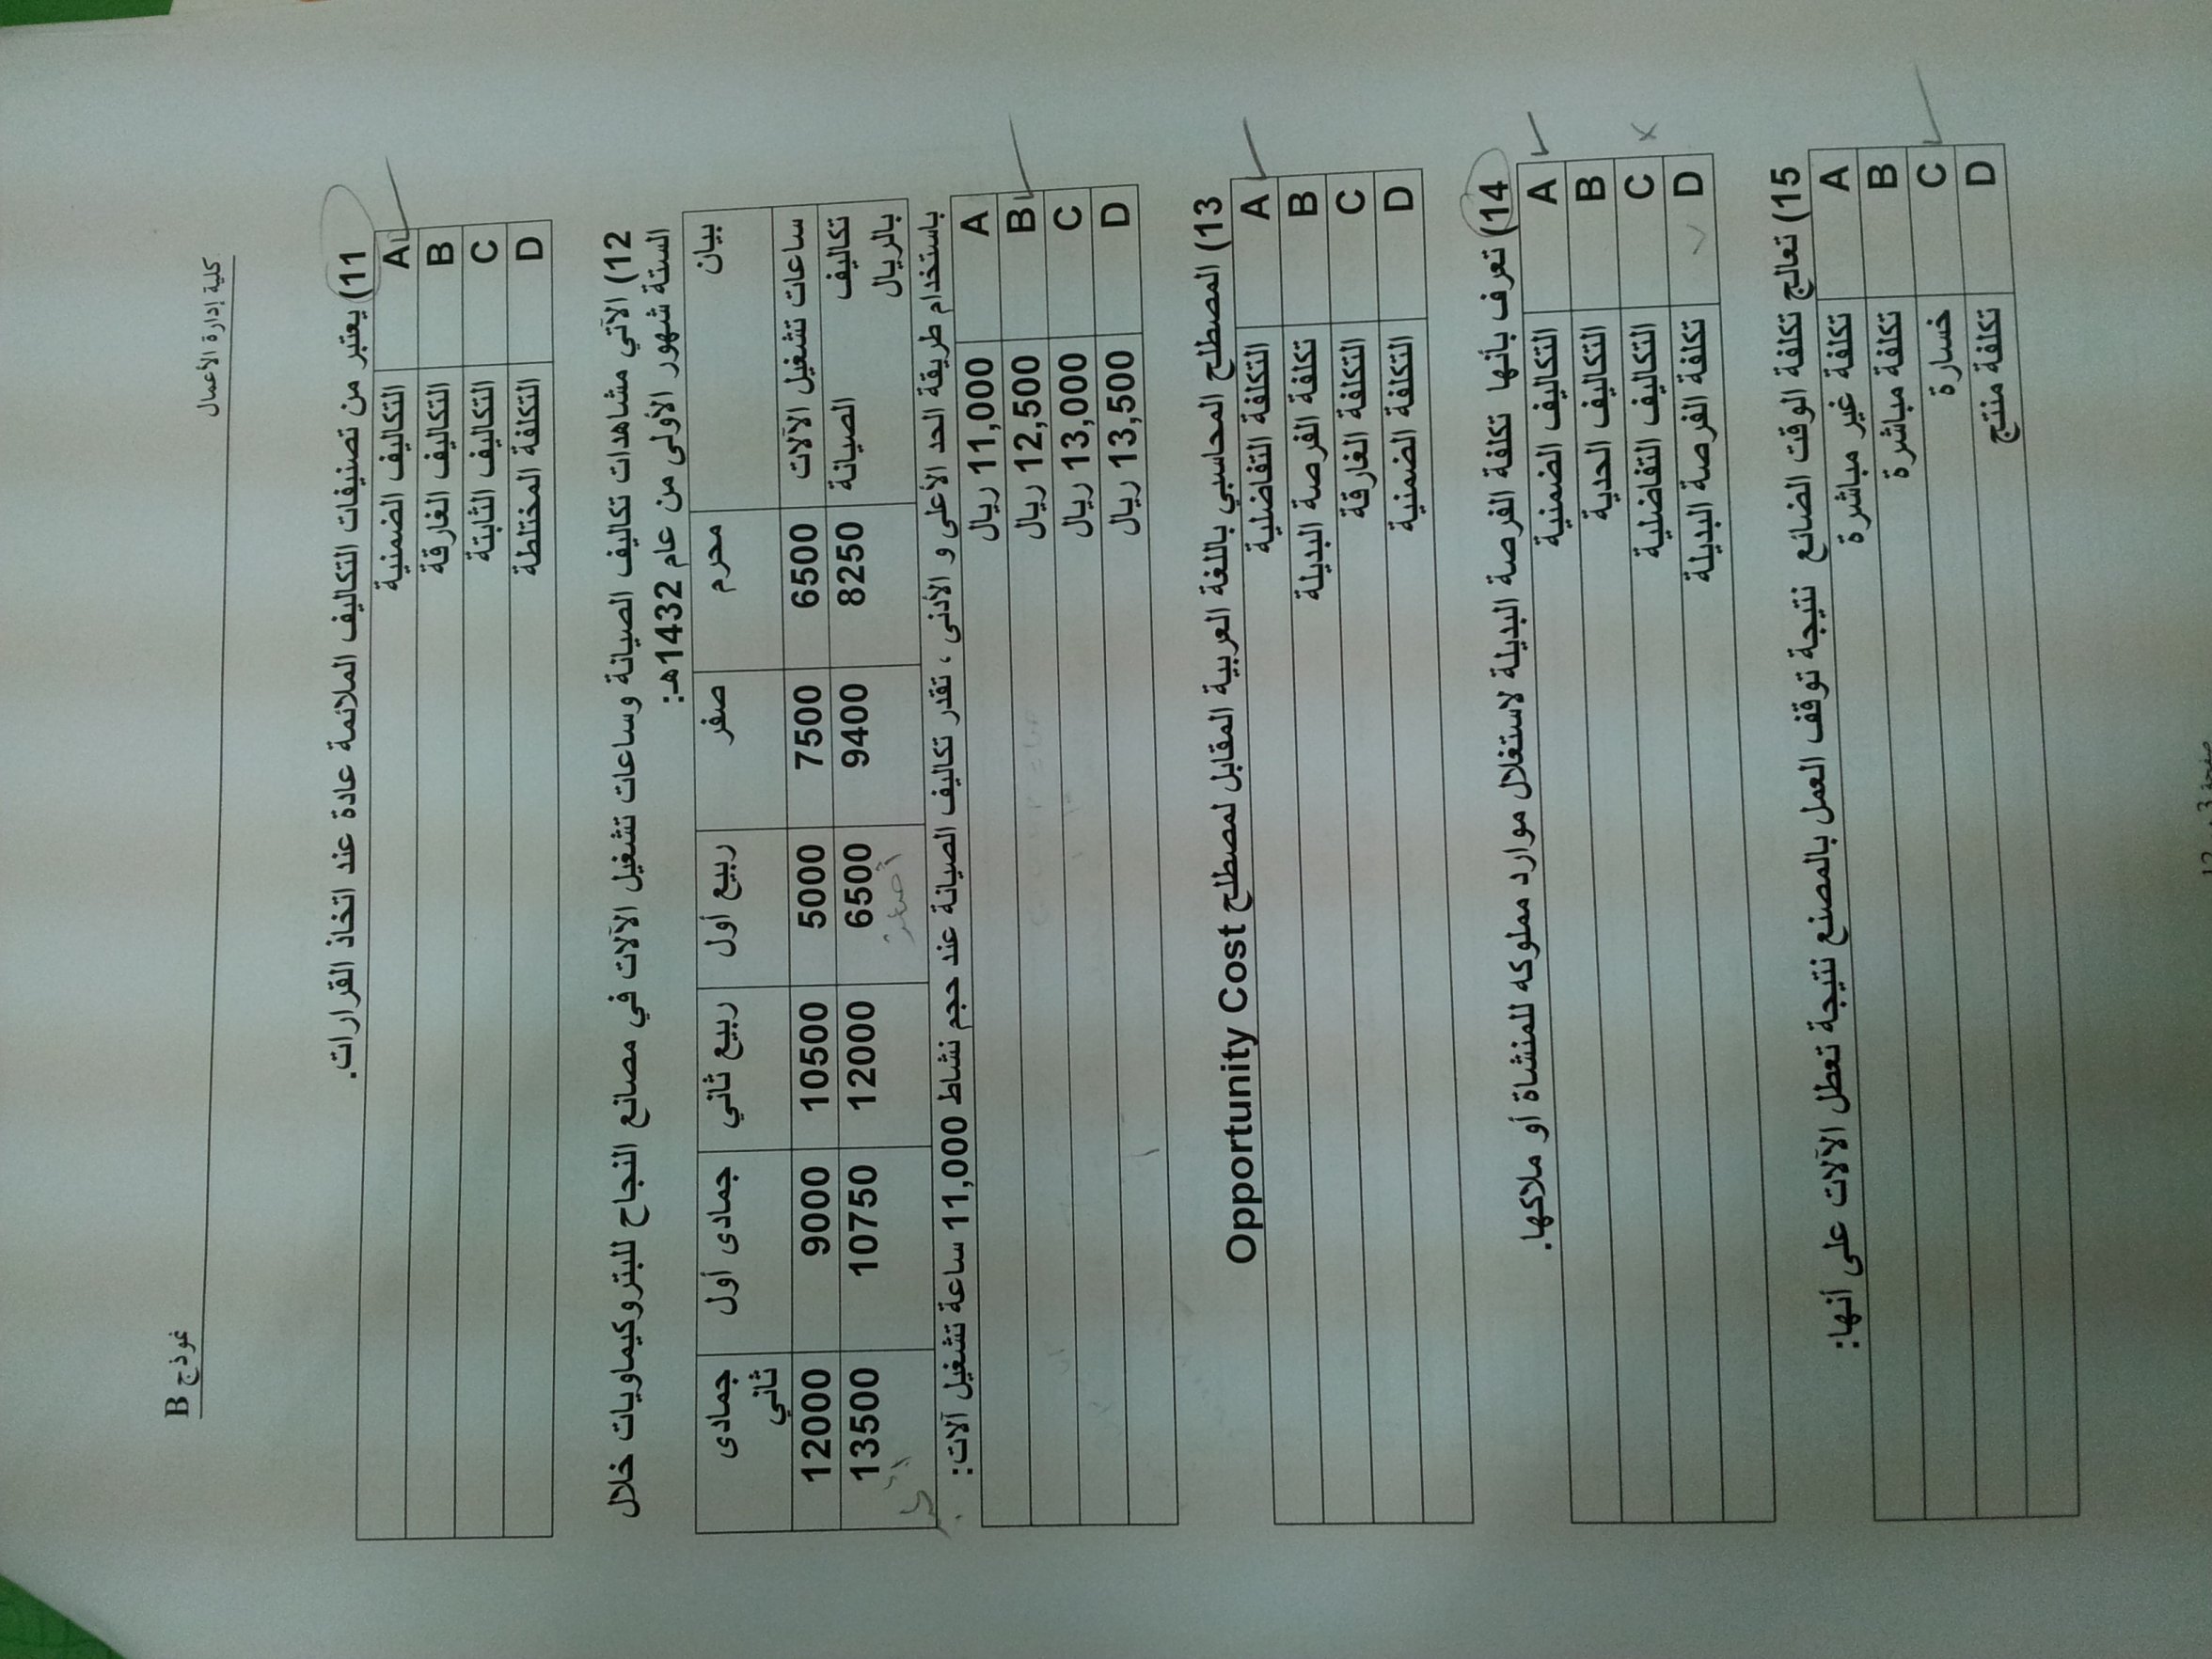 كلية إدارة الأعمال
نموذج B
11) يعتبر من تصنيفات التكاليف الملائمة عادة عند اتخاذ القرارات.
A التكاليف الضمنية
B التكاليف الغارقة
C التكاليف الثابتة
D التكلفة المختلطة
12) الآتي مشاهدات تكاليف الصيانة وساعات تشغيل الآلات في مصانع النجاح للبتروكيماويات خلال
الستة شهور الأولى من عام 1432هـ:
بيان محرم صفر ربيع أول ربيع ثاني جمادى أول جمادى ثاني
ساعات تشغيل الآلات 6500 7500 5000 10500 9000 12000
تكاليف الصيانة بالريال 8250 9400 6500 12000 10750 13500
باستخدام طريقة الحد الأعلى و الأدنى ، تقدر تكاليف الصيانة عند حجم نشاط 11,000 ساعة تشغيل آلات:
A 11,000 ريال
B 12,500 ريال
C 13,000 ريال
D 13,500 ريال
13) المصطلح المحاسبي باللغة العربية المقابل لمصطلح Opportunity Cost
A التكلفة التفاضلية
B تكلفة الفرصة البديلة
C التكلفة الغارقة
D التكلفة الضمنية
14) تعرف بأنها تكلفة الفرصة البديلة لاستغلال موارد مملوكه للمنشاة أو ملاكها.
A التكاليف الضمنية
B التكاليف الحدية
C التكاليف التفاضلية
D تكلفة الفرصة البديلة
15) تعالج تكلفة الوقت الضائع نتيجة توقف العمل بالمصنع نتيجة تعطل الآلات على أنها:
A تكلفة غير مباشرة
B تكلفة مباشرة
C خسارة
D تكلفة منتج